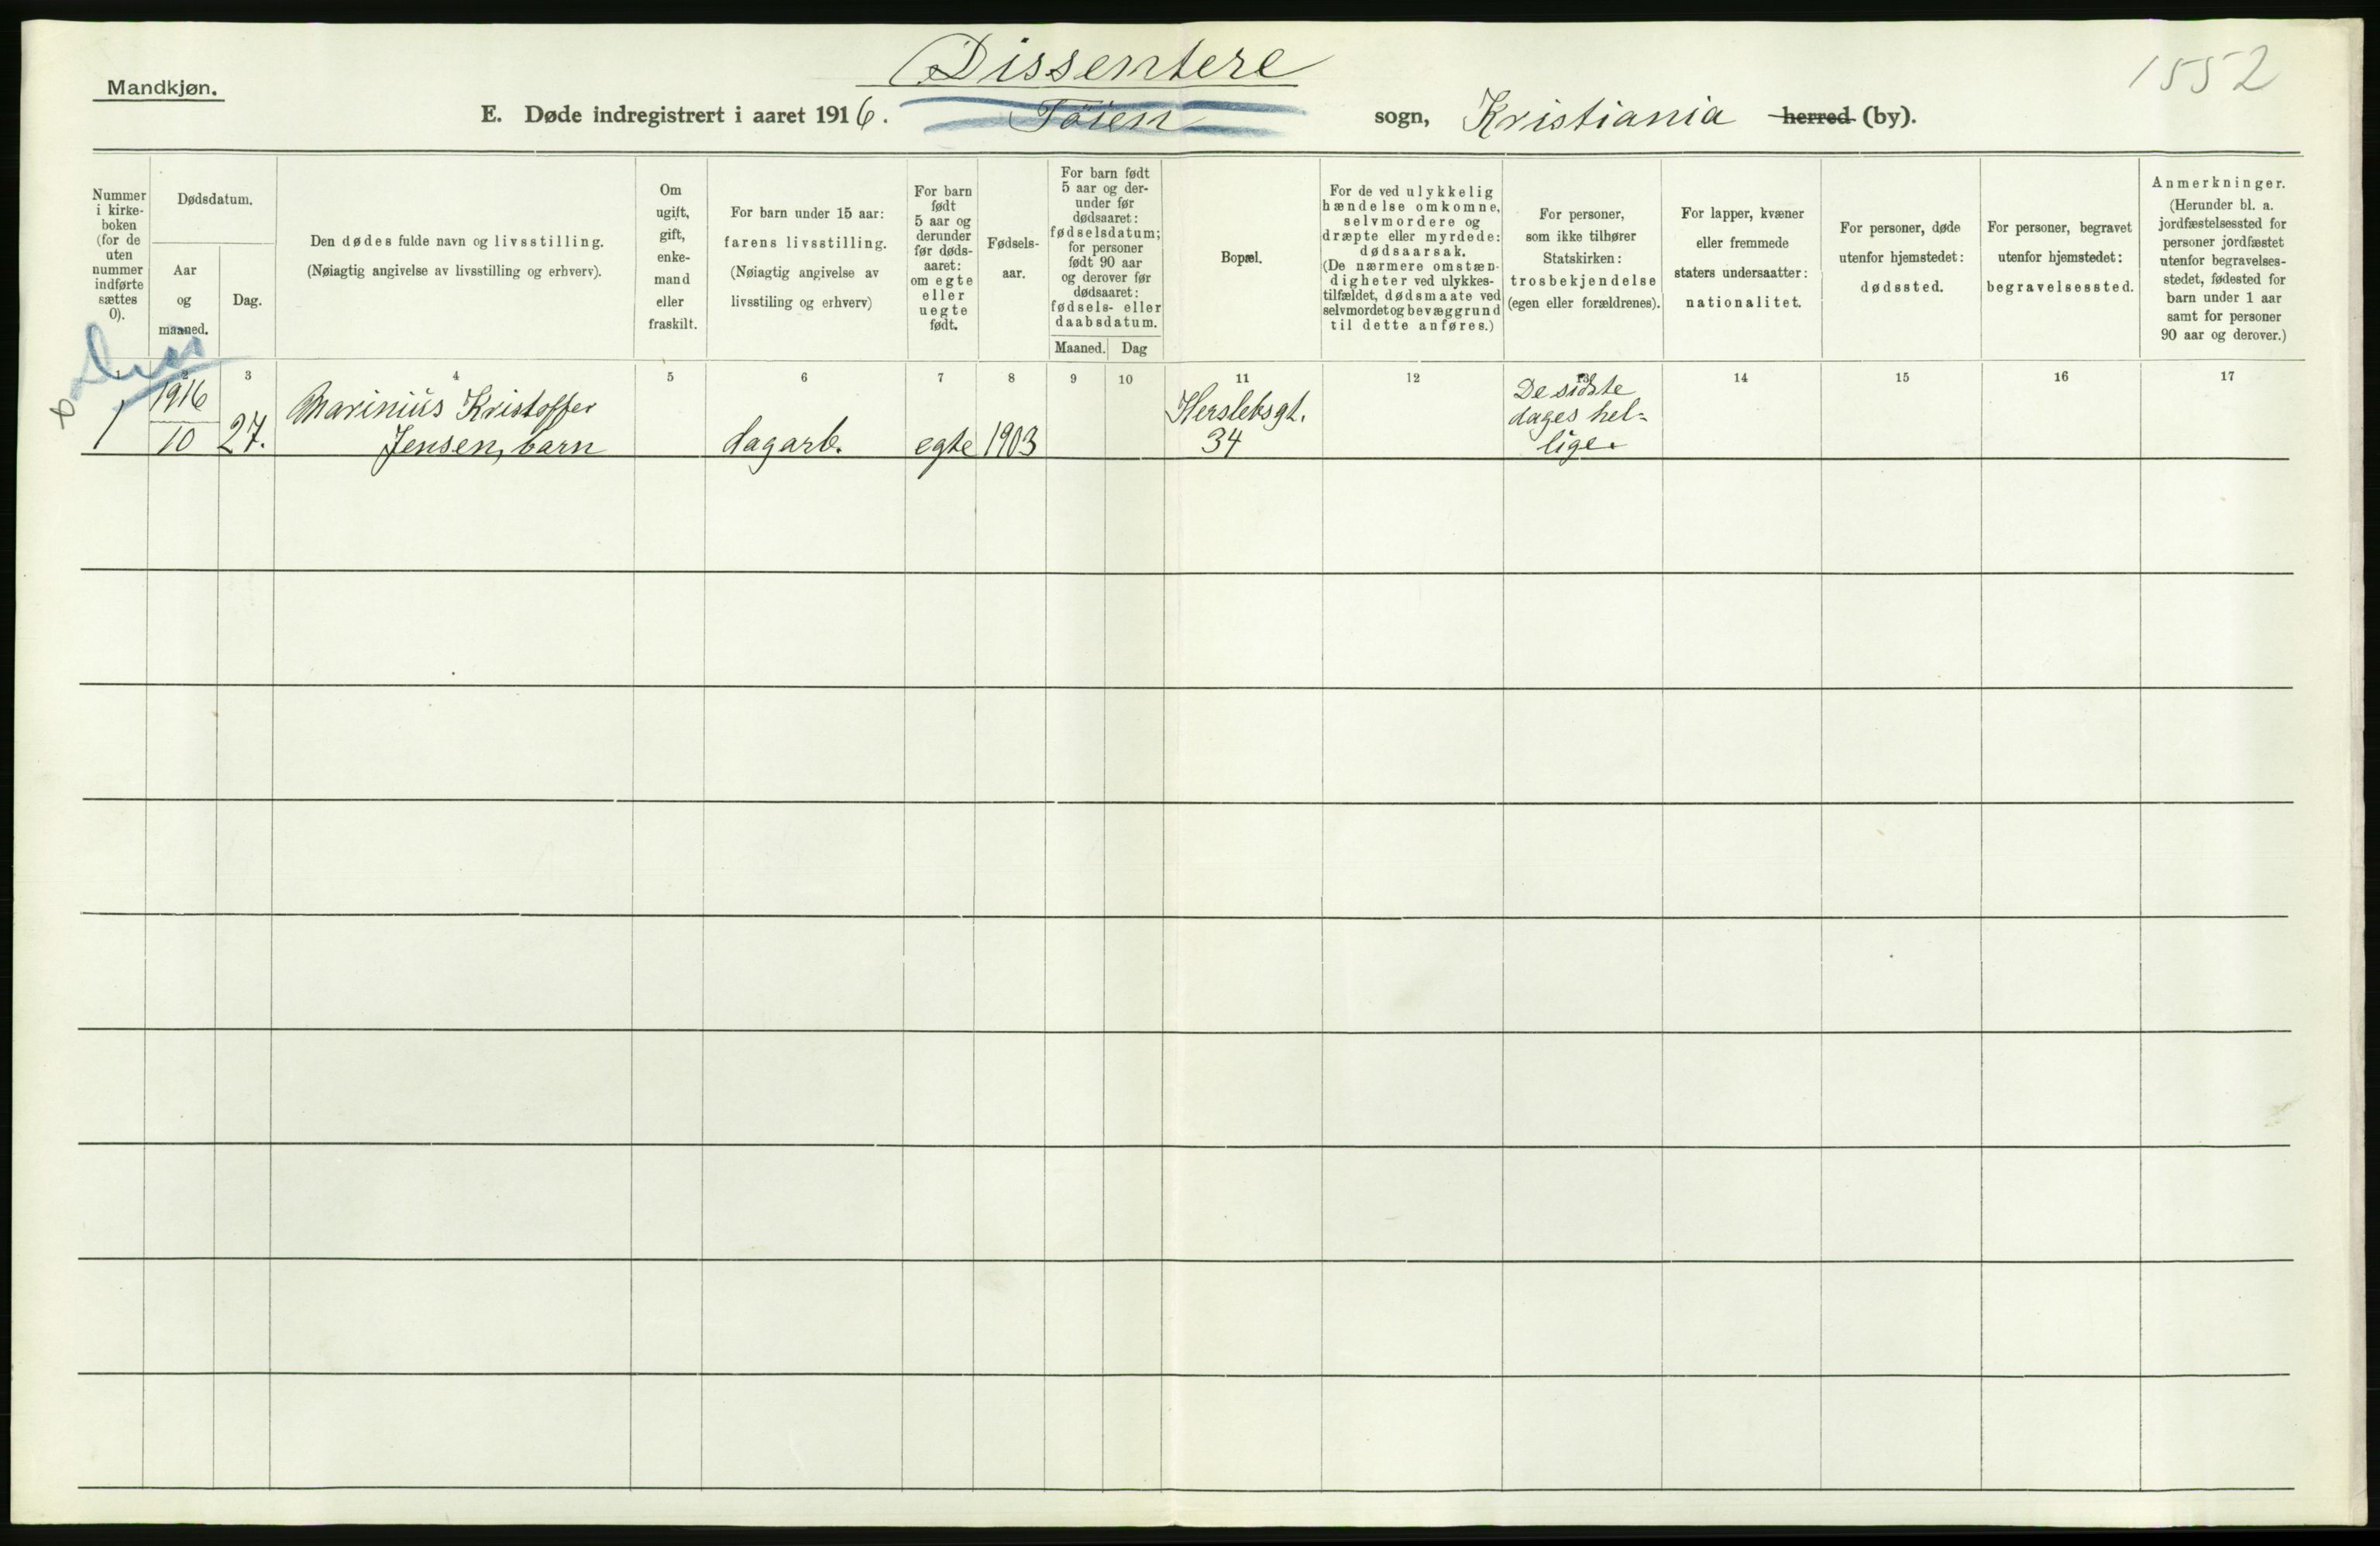 Dissentere
1552
Mandkjøn.
E. Døde indregistrert i aaret 1916. Tøien sogn, Kristiania herred (by).
Nummer
i kirke-
boken
(for de
uten
nummer
indførte
sættes
0).
Dødsdatum.
Aar
og
maaned.
Dag.
Den dødes fulde navn og livsstilling.
(Nøiagtig angivelse av livsstilling og erhverv).
Om
ugift,
gift,
enke-
mand
eller
fraskilt.
For barn under 15 aar:
farens livsstilling.
(Nøiagtig angivelse av
livsstiling og erhverv)
For barn
født
5 aar og
derunder
før døds-
aaret:
om egte
eller
uegte
født.
Fødsels-
aar.
For barn født
5 aar og der-
under før
dødsaaret:
fødselsdatum;
for personer
født 90 aar
og derover før
dødsaaret:
fødsels- eller
daabsdatum.
Maaned. Dag
Bopæl.
For de ved ulykkelig
hændelse omkomne,
selvmordere og
dræpte eller myrdede:
dødsaarsak.
(De nærmere omstæn-
digheter ved ulykkes-
tilfældet, dødsmaate ved
selvmordet og bevæggrund
til dette anføres.)
For personer,
som ikke tilhører
Statskirken:
trosbekjendelse
(egen eller forældrenes).
For lapper, kvæner
eller fremmede
staters undersaatter:
nationalitet.
For personer, døde
utenfor hjemstedet:
dødssted.
For personer, begravet
utenfor hjemstedet:
begravelsessted.
Anmerkninger.
(Herunder bl. a.
jordfæstelsessted for
personer jordfæstet
utenfor begravelses-
stedet, fødested for
barn under 1 aar
samt for personer
90 aar og derover.)
1 2 3 4 5 6 7 8 9 10 11 12 13 14 15 16 17
1916 Marinius Kristoffer Herslebsgt. De sidste
dages hel-
1 10 27. Jensen, barn dagarb. egte 1903 34 lige.